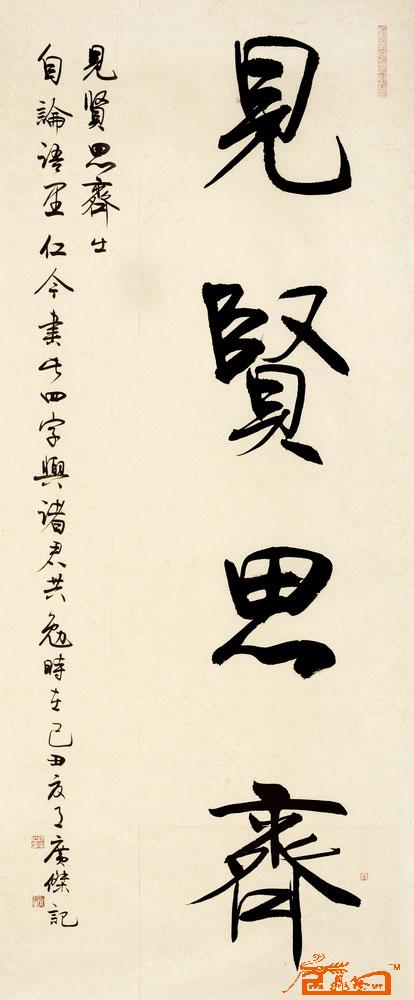 見賢思齊
見賢思齊出
自論語里仁今書此四字與諸君共勉時在己丑夏月廣傑記
TM